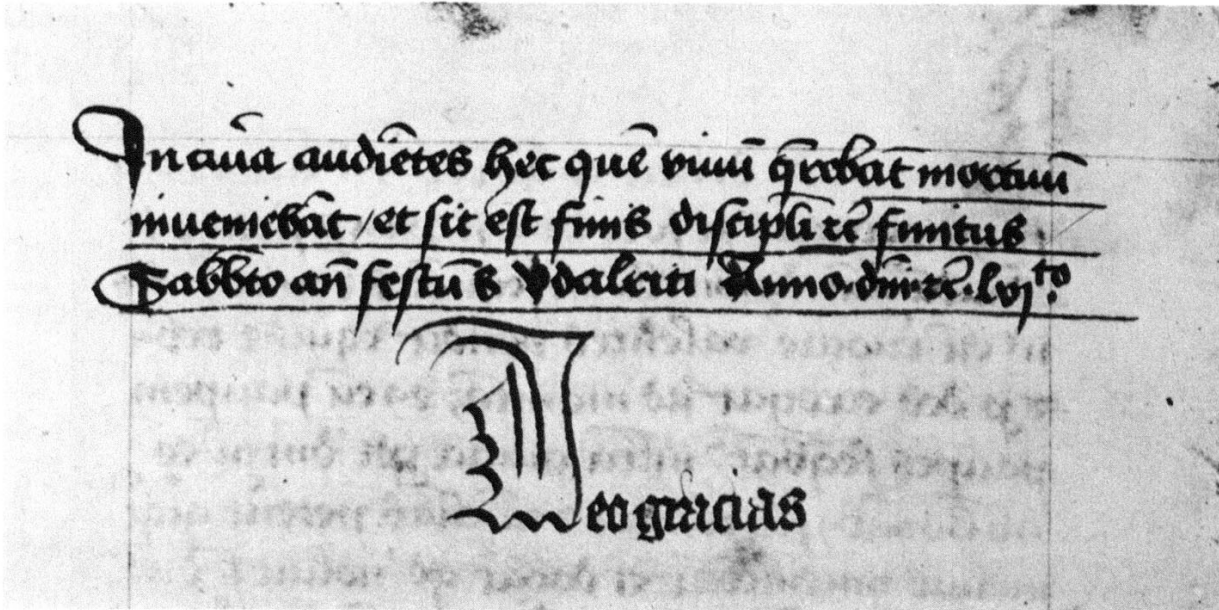 In cūa audiētes hec quē viuū q̄rebāt mortuū
inueniebāt / et sic est finis discipli rc̄ finitus
Sabb̄to an̄ festū s Vdalrici Anno dn̄i rc̄ lvjto
Deo gracias